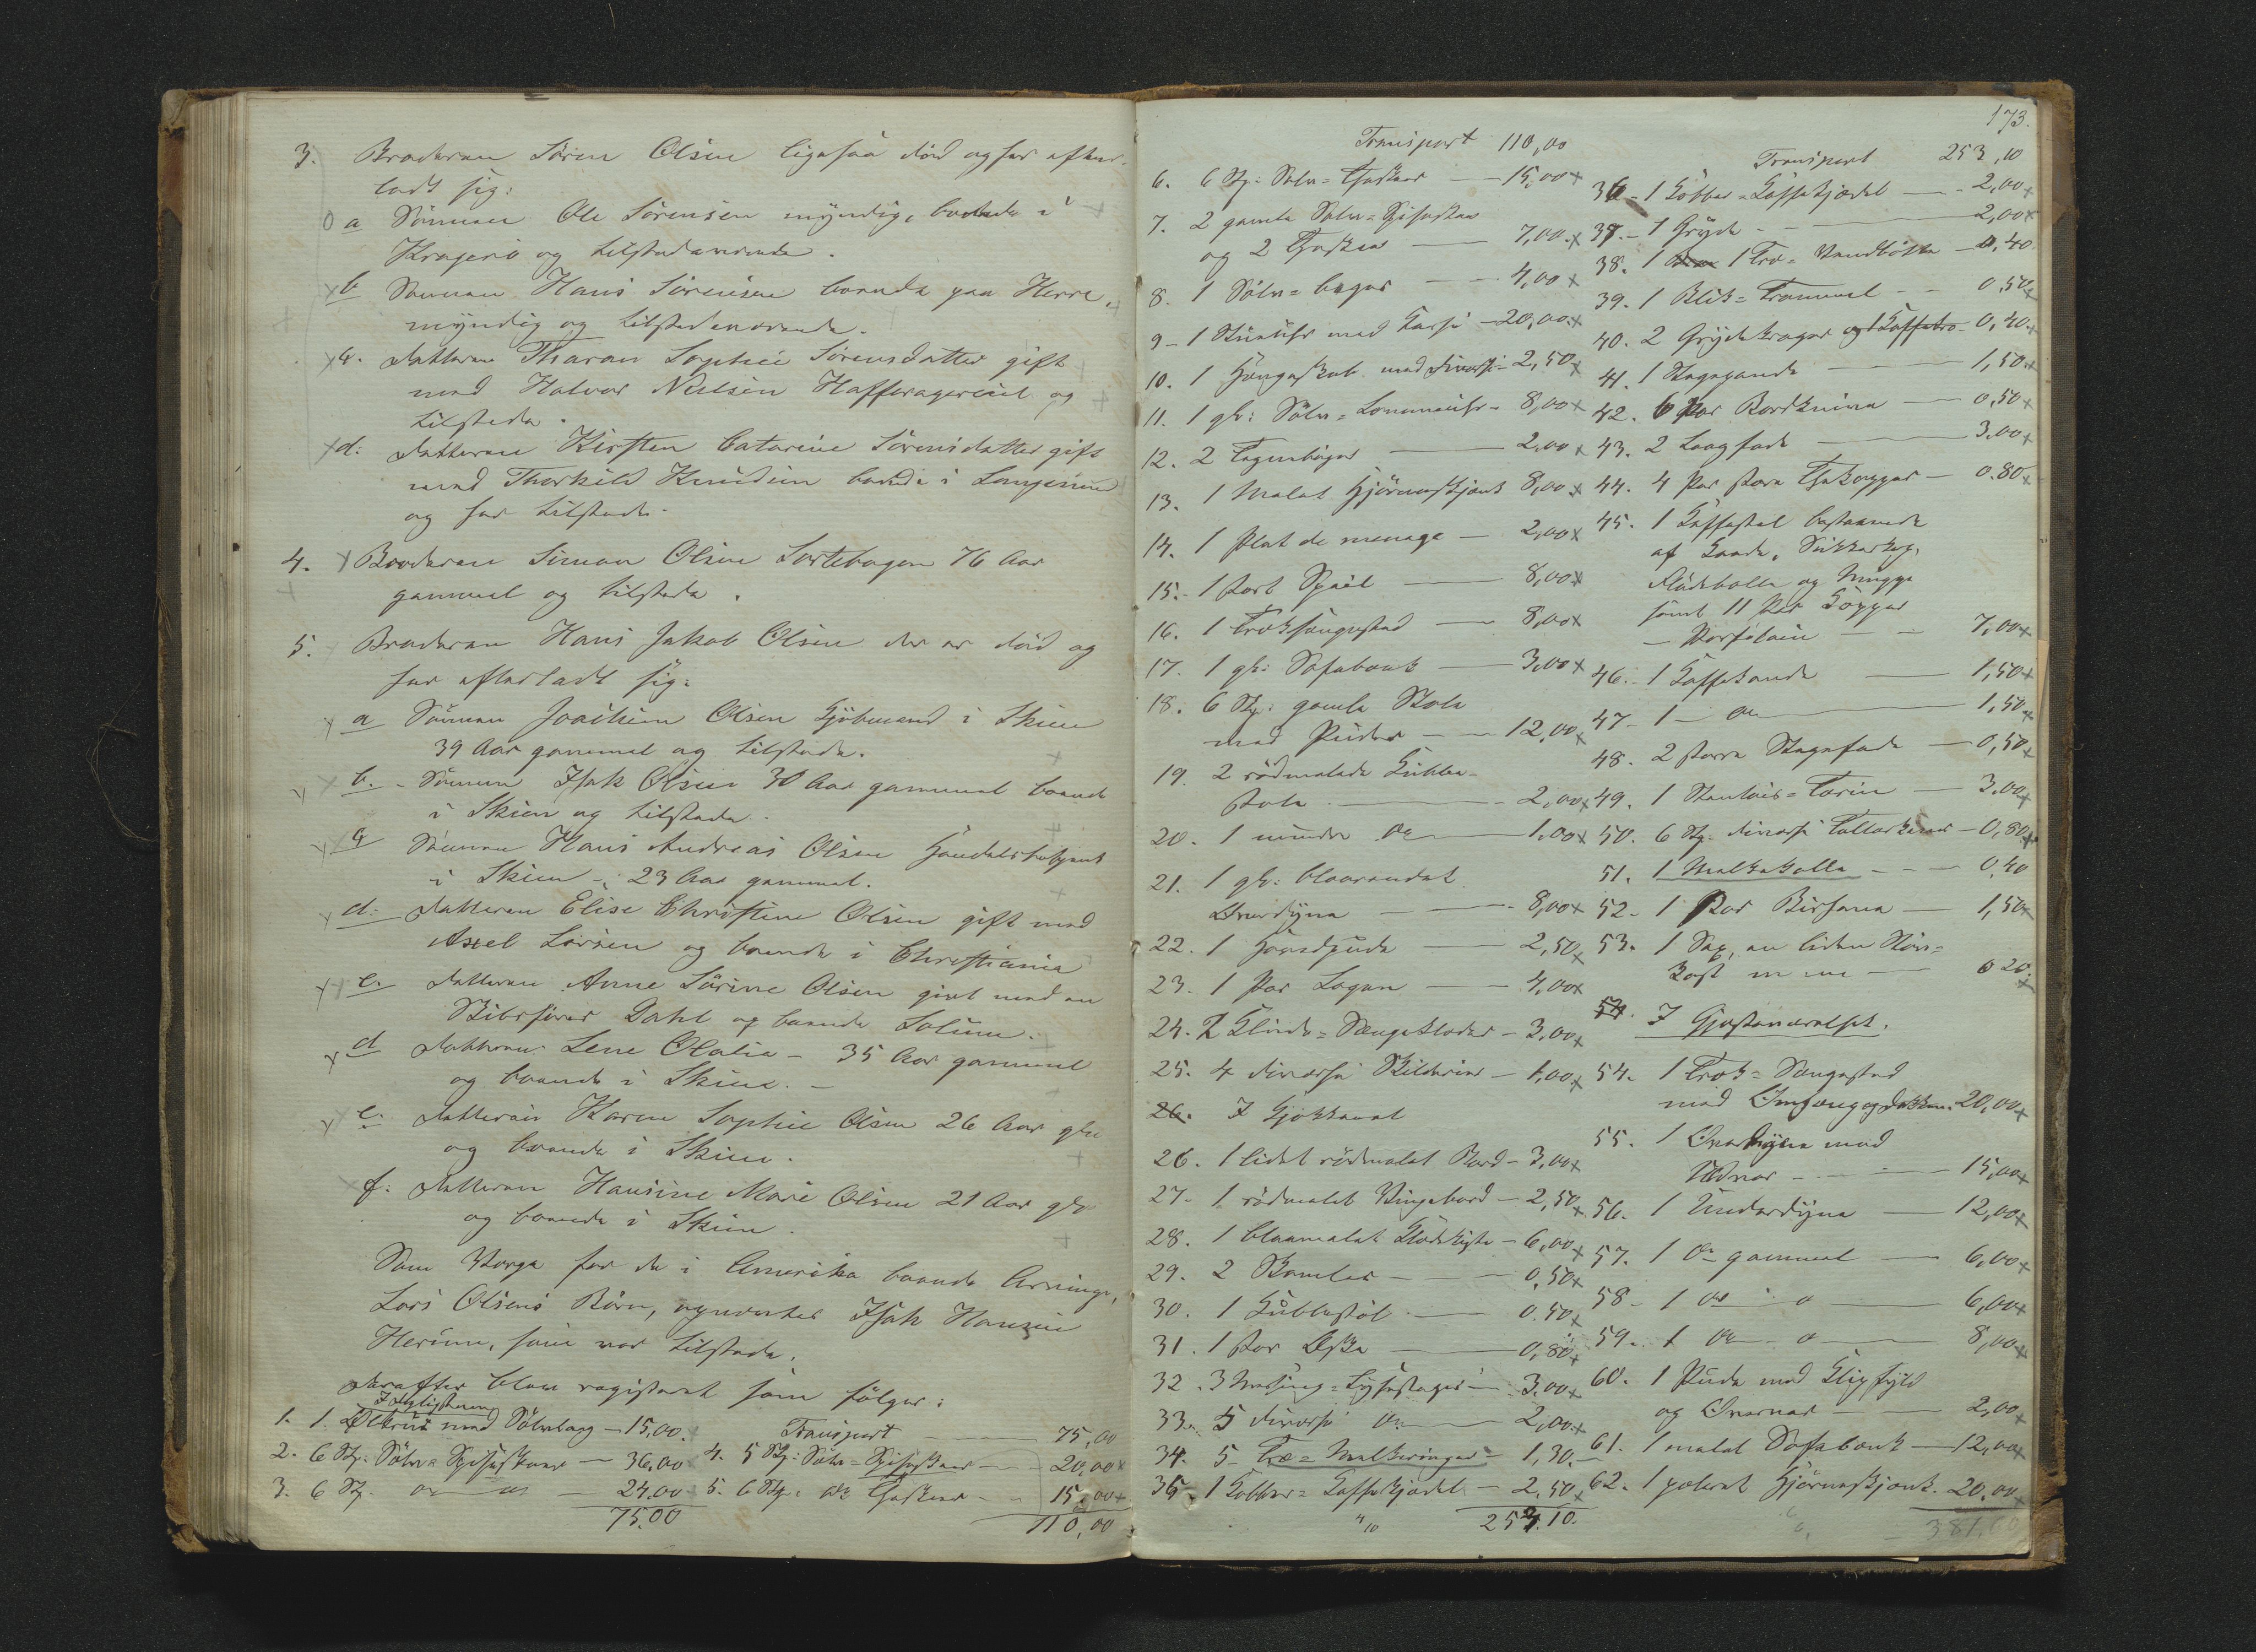 3. Broderen Sören Olsen ligesaa död og har efter-
ladt sig:
a Sönnen Ole Sörensen myndig, boende i
Kragerö og tilstedeværende.
b Sönnen Hans Sörensen boende paa Herre,
myndig og tilstedeværende.
c. Datteren Tharan Sophie Sörensdatter gift
med Halvor Nielsen og
tilstede.
d: Datteren Kirsten Catarine Sörensdatter gift
med Thorkild Knudsen boende i Langesund
og har tilstede.
4. Broderen Simon Olsen Sortebogen 76 Aar
gammel og tilstede.
5. Broderen Hans Jakob Olsen der er död og
har efterladt sig:
a Sönnen Joachim Olsen Kjöbmand i Skien
39 Aar gammel og tilstede.
b. Sönnen Isak Olsen 30 Aar gammel boende
i Skien og tilstede.
c Sönnen Hans Andreas Olsen Handelsbetjent
i Skien - 23 Aar gammel.
d: Datteren Elise Christine Olsen gift med
Axel Larsen og boende i Christiania
e. Datteren Anne Sörine Olsen givt med en
Skibsförer Dahl og boende Solum.
d Datteren Lene Olalia - 35 Aar gammel
og boende i Skien. -
e. Datteren Karen Sophie Olsen 26 Aar gl.
og boende i Skien.
f: Datteren Hansine Marie Olsen 21 Aar gl.
og boende i Skien.
Som Verge for de i Amerika boende Arvinge,
Lars Olsens Börn, opnævntes Isak Hansen
Herum, som var tilstede.
Derefter blev registeret som fölger:
I Dagligstuen
1. 1 Ölkrus med Sölvlaag - 15,00.
2. 6 Stk: Sölv-Spiseskeer - 36,00
3. 6 Stk. do do - 24,00
75.00
Transport 75,00
4. 5 Stk: Sölv-Spiseskeer - 20,00
5. 6 Stk: do Theskeer - 15,00
110,00
173.
Transport 110,00
6. 6 Stk: Sölv-Theskeer - 15,00
7. 2 gamle Sölv-Spiseskeer
og 2 Theskeer - 7,00
8. 1 Sölv-beger - 4,00
9 - 1 Stueuhr med Kasse - 20,00
10. 1 Hengeskab med diverse - 2,50
11. 1 gl: Sölv-Lommeuhr - 8,00
12. 2 - 2,00
13. 1 malet Hjörneskjænk 8,00
14. 1 Plat de menage - 2,00
15. 1 stort Speil - 8,00
16. 1 Træksengested - 8,00
17. 1 gl: Sofabænk - 3,00
18. 6 Stk: gamle Stole
med Puder - 12,00
19. 2 rödmalede Kubbe-
stole - 2,00
20. 1 mindre do - 1.00
21. 1 gl: blaarandet
Overdyne - 8,00
22. 1 Hovedpude - 2,50
23. 1 Par Lagen - 4,00
24. 2 - 3,00
25. 4 diverse Skilderier - 1,00
26. I Kjökkenet
26. 1 lidet rödmalet Bord - 3,00
27. 1 rödmalet Vingebord - 2,50
28. 1 blaamalet Klædekiste - 6,00
29. 2 Skamler - 0,50
30. 1 Kubbestol - 0.50
31. 1 stor Æske - 0,80
32. 3 Messing-Lysestager - 3.00
33. 5 diverse do - 2,00
34. 5 Træ-Melkeringer - 1,30.
35. 1 Kobber-Kaffekjædel - 2.50
253.10.
Transport 253,10
36 - 1 Kobber-Kaffekjædel - 2,00
37. - 1 Gryde - 2,00
38. 1 Træ-Vandbötte - 0,40
39. 1 Blik-Trommel - 0,50
40. 2 Grydekroger og 1 Kaffebro - 0,40
41. 1 Stegepande - 1,50
42. 6 Par Bordknive - 0,50
43. 2 Laagfade - 3.00
44. 4 Par store Thekopper - 0.80
45. 1 Kaffestel bestaaende
af Kande, Sukkerkop,
Flödebolle og Mugge
samt 11 Par Kopper
- Porselain - 7,00
46. - 1 Kaffekande - 1,50
47 - 1 - do - 1,50
48. 2 store Stegefade - 0,50
49. 1 Stentöis-Terin - 3.00
50. 6 Stk. diverse Tallerkener - 0,80
51. 1 Melkekolle - 0,40
52 - 1 Par Bismer - 1,50
53. 1 Sax, en liden Stöv-
kost m m - 0 20.
54. I Gjesteværelset.
54. 1 Træk-Sengested
med Omheng og Dækken. 20,00
55. 1 Overdyne med
Vaar - 15,00
56. 1 Underdyne - 12,00
57. 1 do gammel - 6,00
58 - 1 do o - 6,00
59. 1 do o - 8,00
60. 1 Pude med
og Overvar - 2,00
61. 1 malet Sofabænk - 12,00
62. 1 poleret Hjörneskjænk. 20.00
381,60